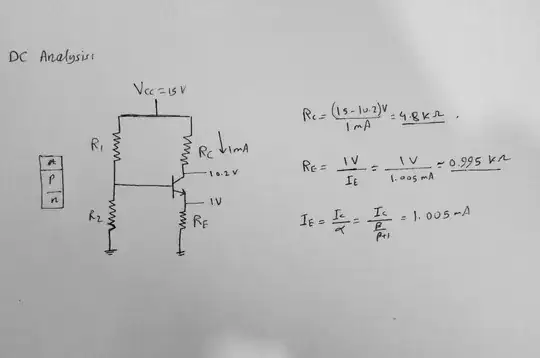 DC Analysis:
Vcc = 15 V
R1
Rc ↓ 1mA
10.2V
n
P
n
1V
R2
RE
Rc = (15-10.2)V / 1mA = 4.8 kΩ .
RE = 1V / IE = 1V / 1.005mA = 0.995 kΩ
IE = Ic / α = Ic / (β / β+1) = 1.005mA